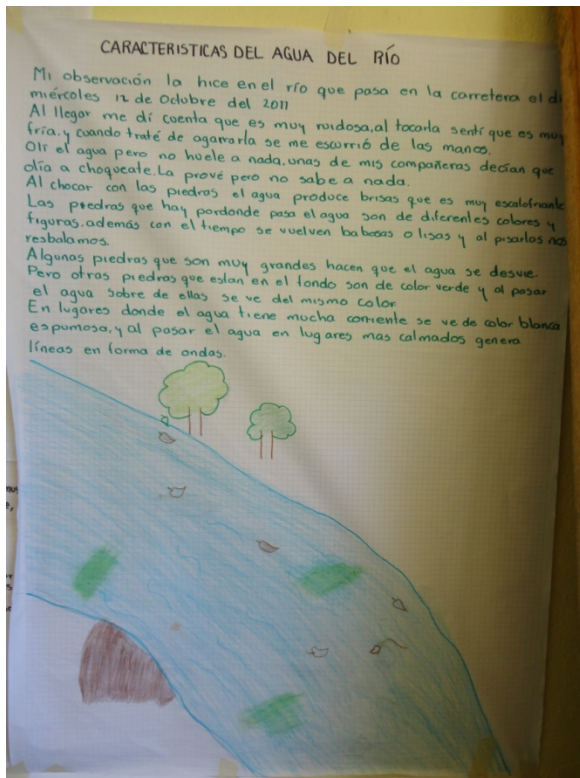 CARACTERISTICAS DEL AGUA DEL RÍO
Mi observación la hice en el río que pasa en la carretera el dí
miércoles 12 de Octubre del 2011
Al llegar me dí cuenta que es muy ruidosa, al tocarla sentí que es muy
fría, y cuando traté de agarrarla se me escurrió de las manos.
Olí el agua pero no huele a nada, unas de mis compañeras decían que
olía a choquecate. La prové pero no sabe a nada.
Al chocar con las piedras el agua produce brisas que es muy escalofriante
Las piedras que hay pordonde pasa el agua son de diferentes colores y
figuras, además con el tiempo se vuelven babosas o lisas y al pisarlas nos
resbalamos.
Algunas piedras que son muy grandes hacen que el agua se desvíe.
Pero otras piedras que estan en el fondo son de color verde y al pasar
el agua sobre de ellas se ve del mismo color
En lugares donde el agua tiene mucha corriente se ve de color blanca
espumosa, y al pasar el agua en lugares mas calmados genera
líneas en forma de ondas.